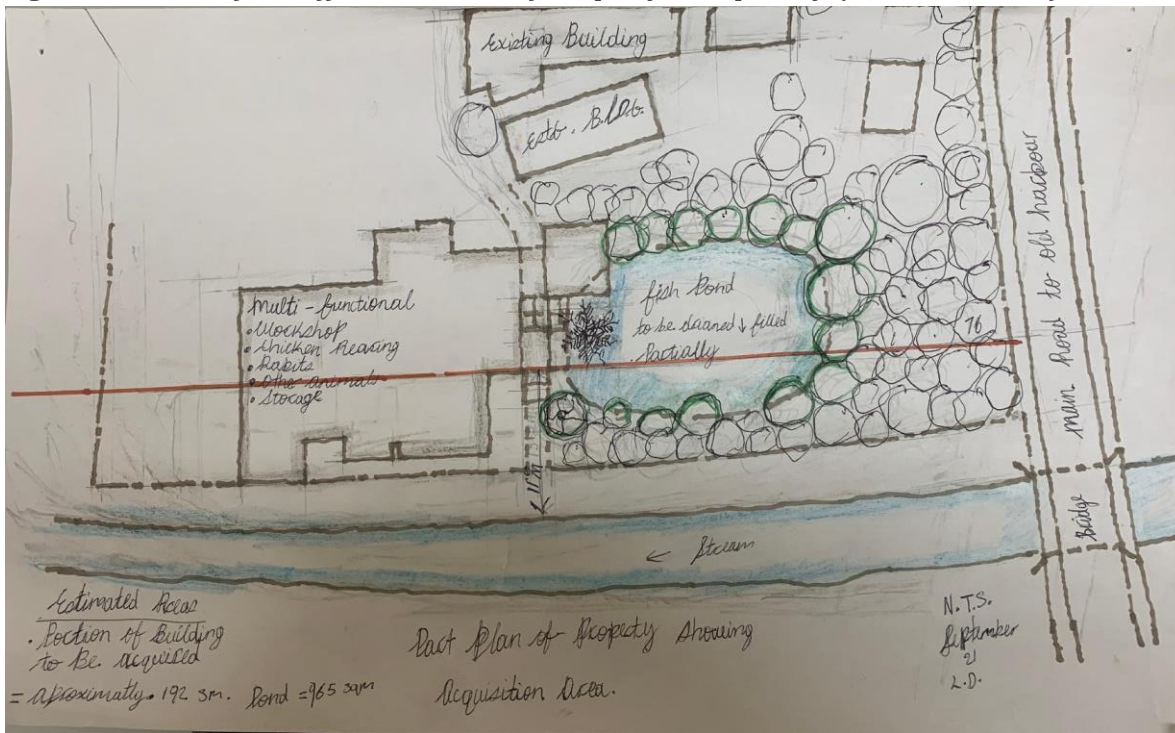 Existing Building
Estb. B.l.D.G.
Multi-functional
• Workshop
• Chicken Rearing
• Rabits
• Othe animals
• Storage
fish Pond
to be drained ↓ filled
Partially
76
main Road to old harbour
Bridge
← Stream
Estimated Areas
• Portion of Building
to Be acquired
= Aproximatly. 192 sm. Pond = 965 sqm
Part Plan of Property Showing
Acquisition Area.
N.T.S.
September
21
L.D.